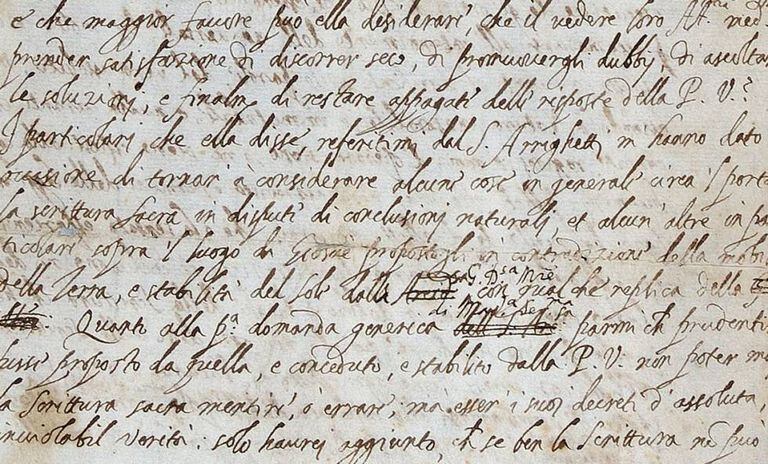 e che maggior favore puo ella desiderare, che il vedere loro Alt. med
prender satisfazione di discorrer seco, di promuovergli dubbij, di ascoltar
le soluzioni, e finalm. di restare appagate delle risposte della P. V.?
I particolari che ella disse, referitimi dal S. Arrighetti m hanno dato
occasione di tornar' à considerare alcune cose in generale circa 'l porta
la scrittura Sacra in dispute di conclusioni naturali, et alcun' altre in pa
ticolare sopra 'l luogo di Giosue propostogli in contradizione della mobil
della Terra, e stabilità del Sole dalla con qualche replica della
Quanto alla p.ª domanda generica di parmi ch prudentiss
fusse proposto da quella, e conceduto, e stabilito dalla P. V. non poter ma
la Scrittura sacra mentire, ò errare, ma esser i suoi decreti d' assoluta,
inviolabil verità: solo haurei aggiunto, ch se ben la Scrittura nō può